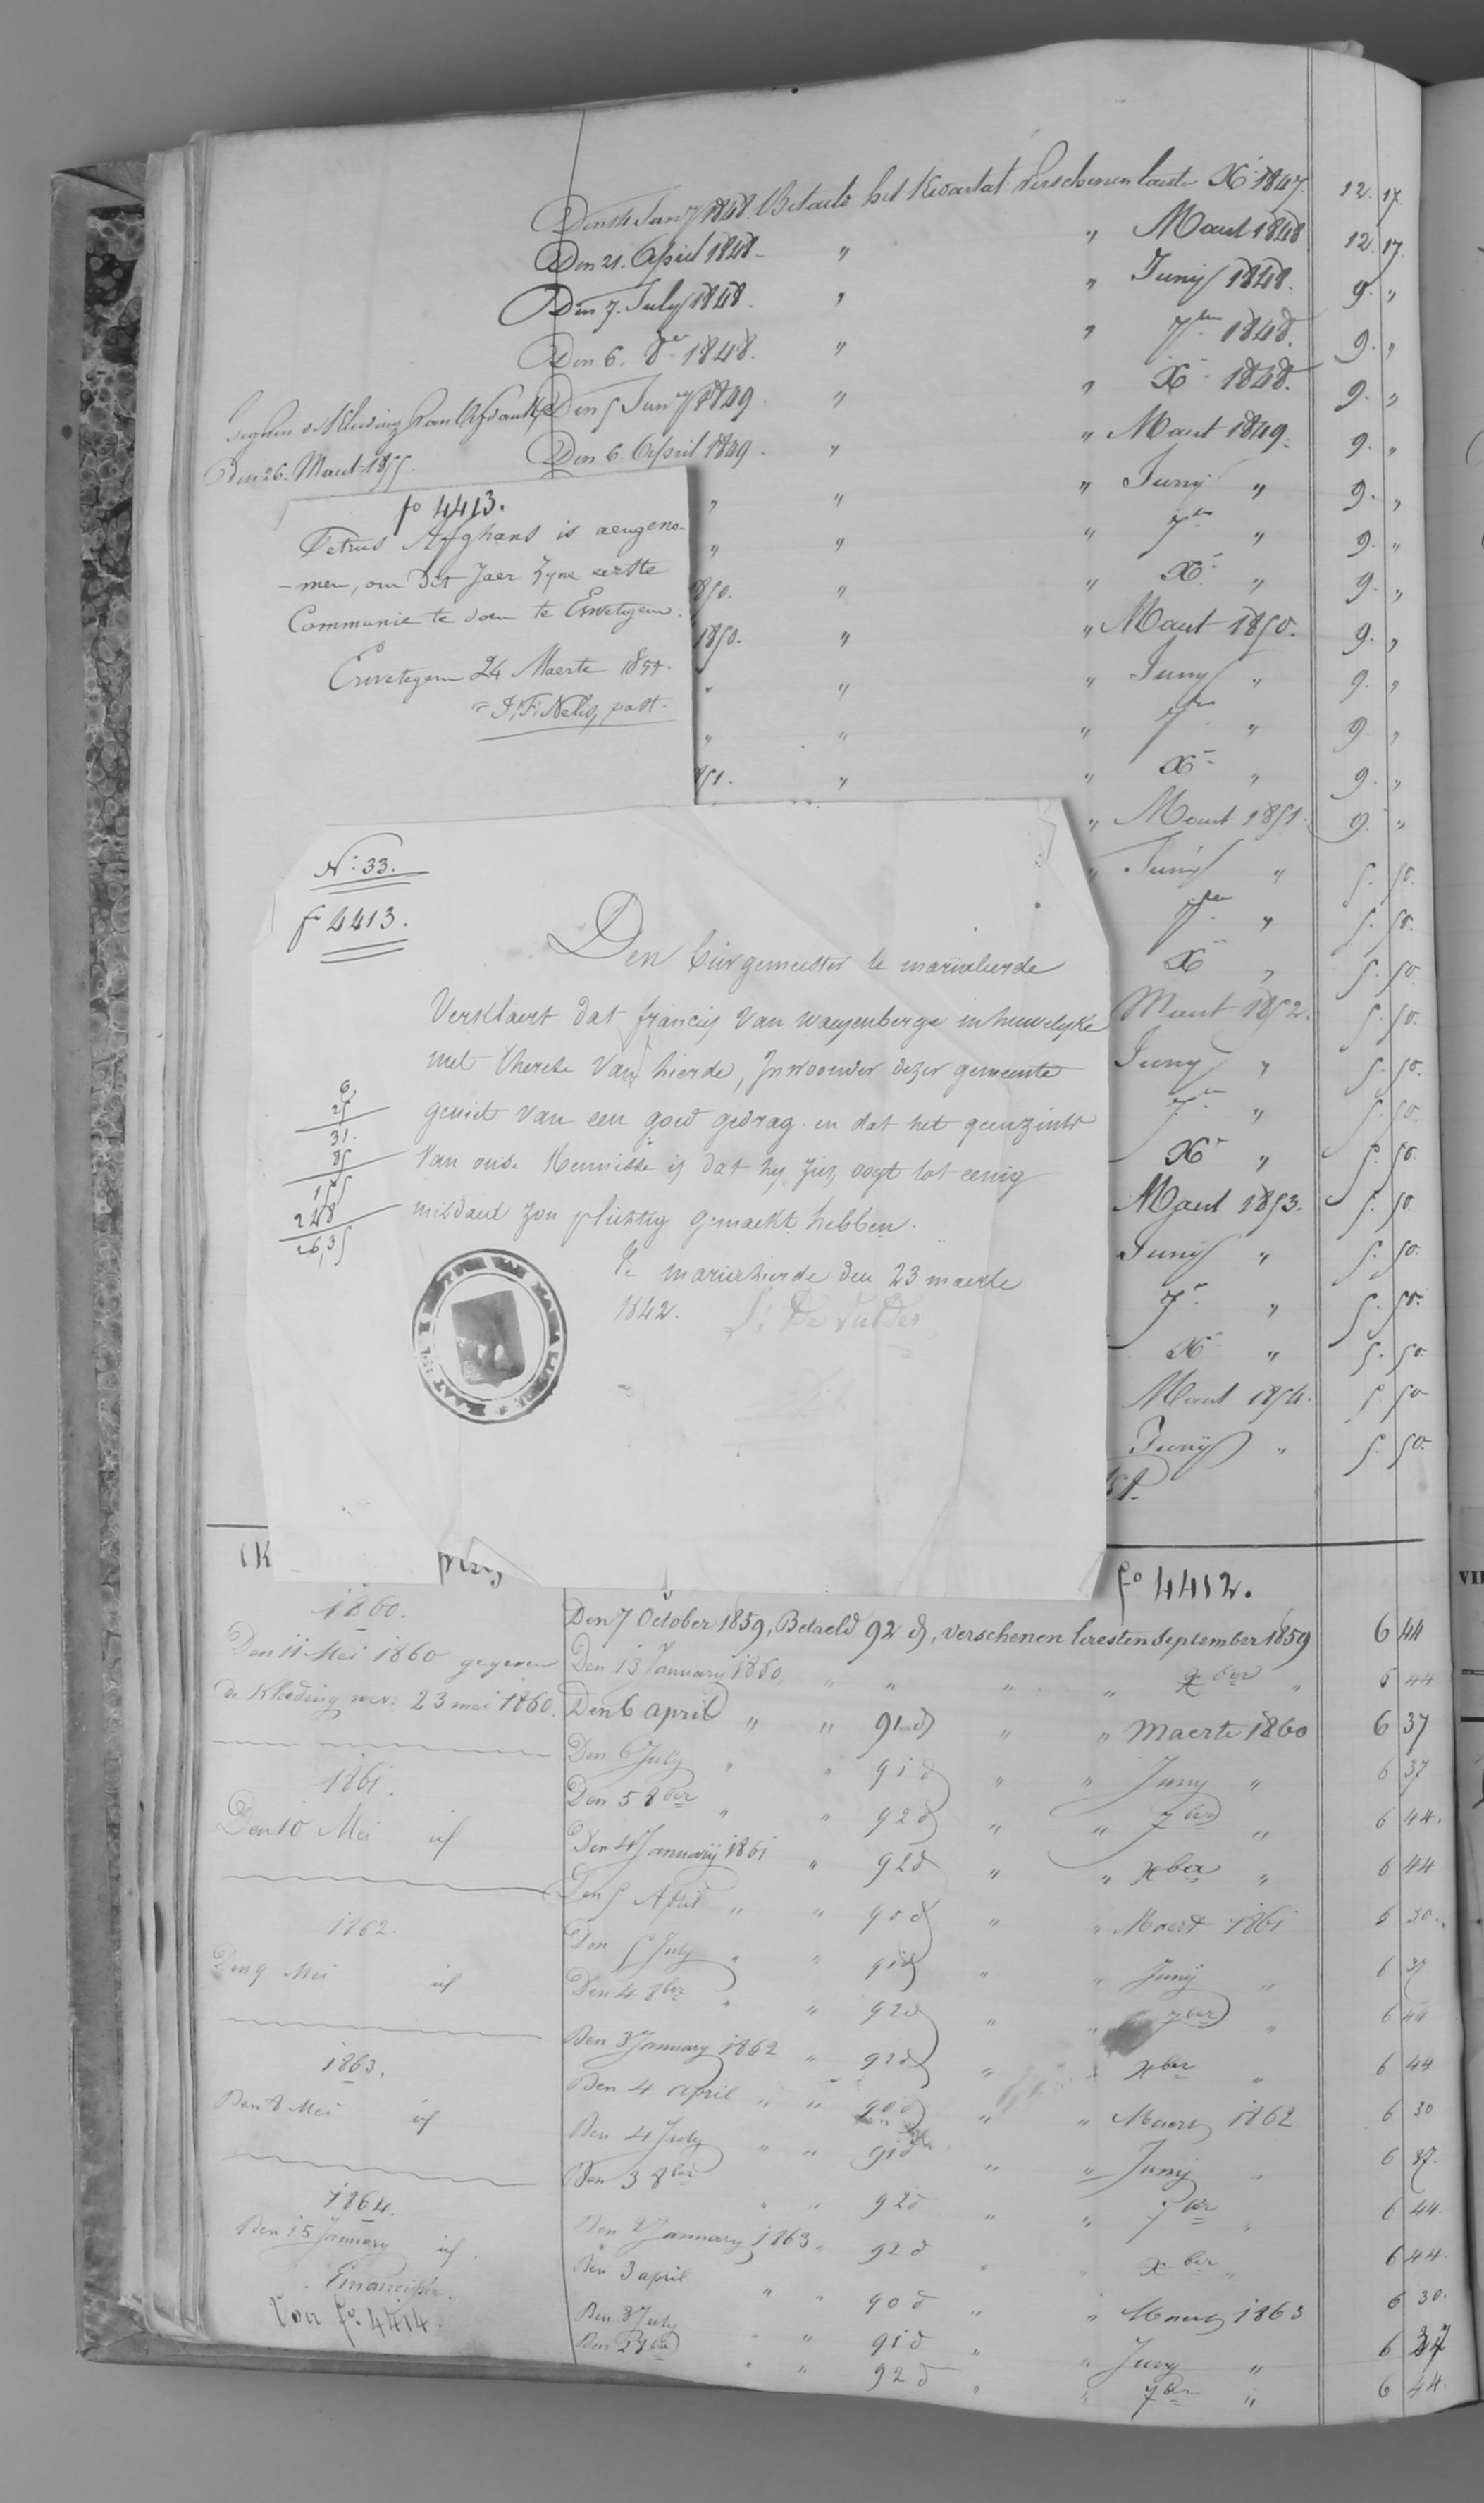 Den 14 Jan.y 1848. Betaeld het Kwartal verschenen laeste Xr 1847. 12. 17.
Den 21. April 1848. " " Maart 1848 12. 17.
Den 7. July 1848. " " Junij 1848. 9. "
Den 6. 8er 1848. " " 7er 1848. 9. "
Den 5 Jan.y 1849. " " Xr 1848. 9. "
Den 6. April 1849. " " Maart 1849. 9. "
Den 26. Maart 1855.
" " " Junij " 9. "
" " " 7er " 9. "
1850. " " Xr " 9. "
1850. " " Maart 1850. 9. "
" " " Juny " 9. "
" " " 7er " 9. "
1851. " " Xr " 9. "
" Maart 1851. 9. "
" Junij " 5. 50.
7er " 5. 50.
Xr " 5. 50.
Maart 1852. 5. 50.
Juny " 5. 50.
7er " 5. 50.
Xr " 5. 50.
Maart 1853. 5. 50.
Junij " 5. 50.
7r " 5. 50.
Xr " 5. 50.
Maart 1854. 5. 50
Junij " 5. 50.
fo 4413.
Petrus Afghans is aengeno-
-men, om dit Jaer zyne eerste
Communie te doen te Erwetegem.
Erwetegem 24 Maerte 1855.
= J. F. Nelis, past.
N: 33.
fo 4413.
Den burgemeester te marielierde
Verklaert dat francies Van waeyenberge in huwelyke
met Therese Van hierde, Inwoonder dezer gemeente
geniet van een goed gedrag en dat het geenzints
Van onse Kennisse is dat hy zich ooyt tot eenig
misdaed zou plichtig gemaekt hebben.
Te marielierde den 23 maerte
1842. De Vulder
6
25
31.
85
155
248
26,35
fo 4412.
1860.
Den 11 Mei 1860 gegeven
de kleeding rev: 23 mei 1860.
1861.
Den 10 Mei id
1862.
Den 9 Mei id
1863.
Den 8 Mei id
1864.
Den 15 January id.
Emancipée.
Voir fo. 4414.
Den 7 October 1859, Betaeld 92 d, verschenen leresten September 1859 6 44
Den 13 January 1860 " " " " xber " 6 44
Den 6 april " " 91 d " " Maerte 1860 6 37
Den 6 July " " 91 d " " Juny " 6 37
Den 5 8ber " " 92 d " " 7ber " 6 44.
Den 4 Januarij 1861 " 92 d " " xber " 6 44
Den 5 April " " 90 d " " Maert 1861 6 30.
Den 5 July " " 91 d " " Junij " 6 37
Den 4 8ber " " 92 d " " 7ber " 6 44
Den 3 January 1862 " 92 d " " xber " 6 44
Den 4 april " " 90 d " " Maert 1862 6 30
Den 4 July " " 91 d " " Junij " 6 37.
Den 3 8ber " " 92 d " " 7ber " 6 44.
Den 2 January 1863 " 92 d " " xber " 6 44.
Den 3 april " " 90 d " " Maert 1863 6 30.
Den 3 July " " 91 d " " Juny " 6 37
Den 2 8ber " " 92 d " " 7ber " 6 44.
VII